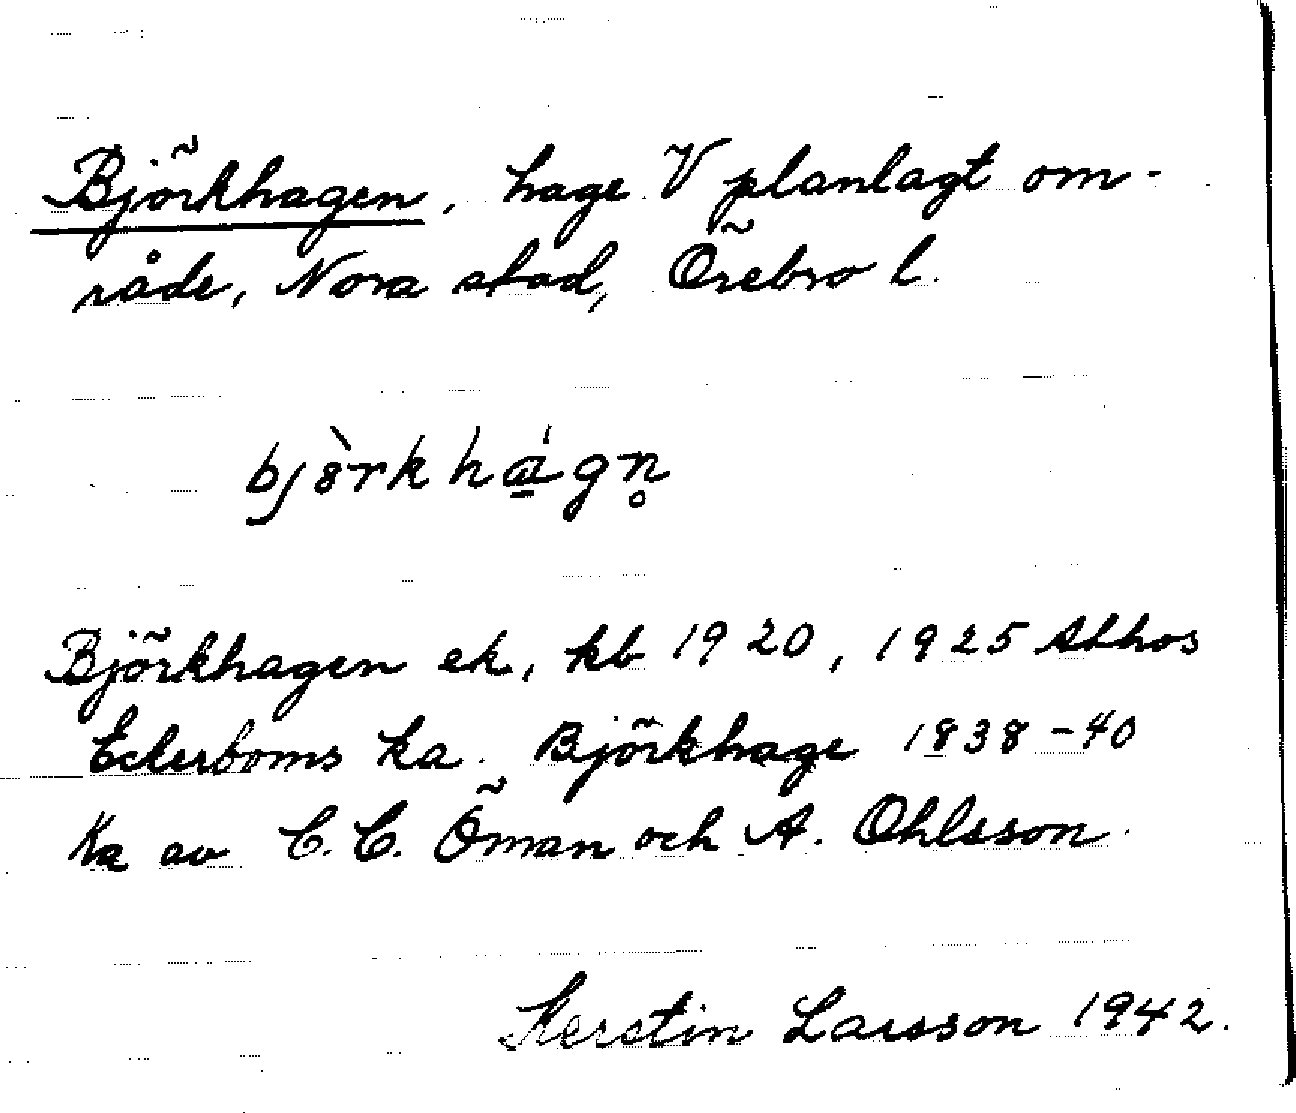 Björkhagen, hage V planlagt om-
råde, Nora stad, Örebro l.
bjö̀rkhágn̥
Björkhagen ek, kb 1920, 1925 Athos
Eckerboms ka. Björkhage 1838-40
Ka av C. C. Öman och A. Ohlsson.
Kerstin Larsson 1942.